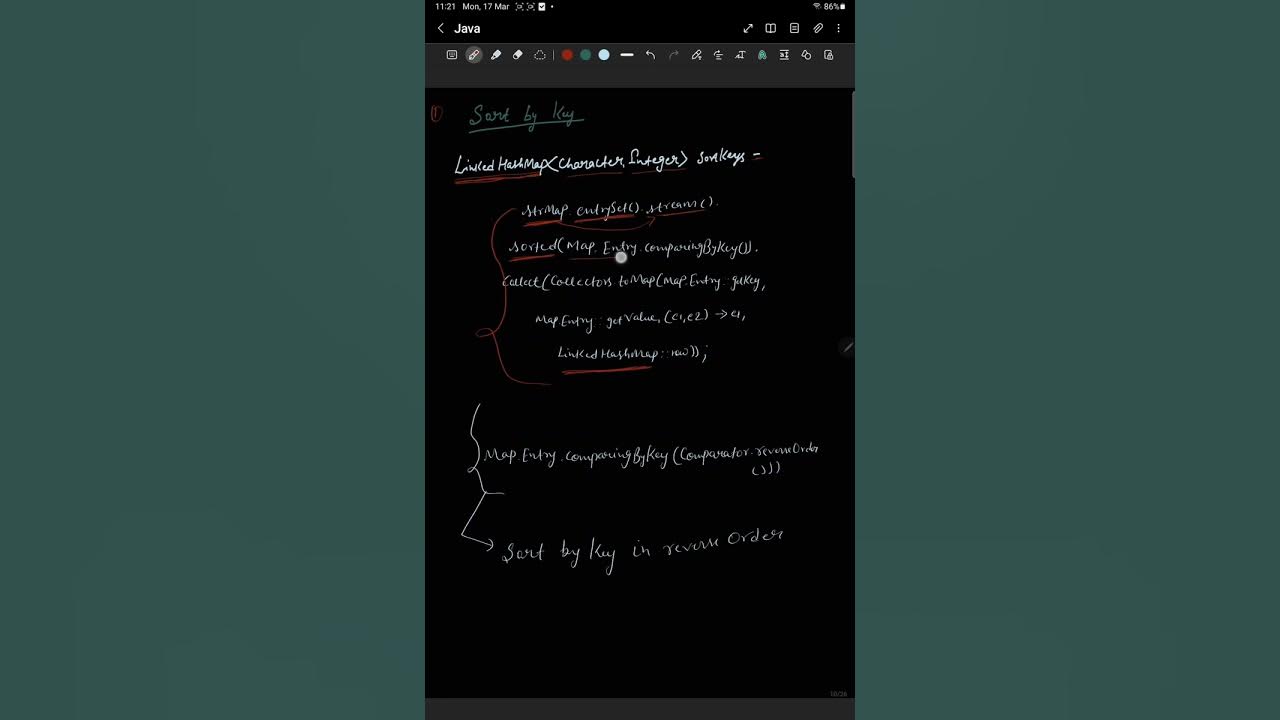 11:21 Mon, 17 Mar 86%
Java
① Sort by Key
LinkedHashMap<Character, Integer> sortKeys =
strMap.entrySet().stream().
sorted(Map.Entry.comparingByKey()).
collect(Collectors.toMap(Map.Entry::getKey,
Map.Entry::getValue,(e1,e2) → e1,
LinkedHashMap::new));
Map.Entry.comparingByKey(Comparator.reverseOrder
()))
Sort by Key in reverse Order
10/26